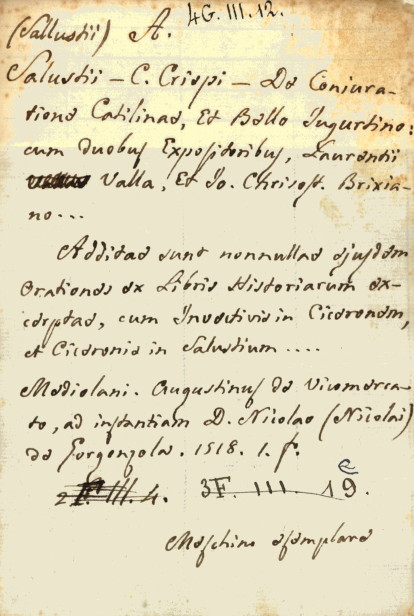 (Sallustii) A. 4G. III. 12.
Salustii – C. Crispi – De Coniura-
tione Catilinae, Et Bello Jugurtino:
cum duobus Expositoribus, Laurentii
Valla, Et Jo. Chrisost. Brixia-
no...
Additae sunt nonnullae ejusdem
Orationes ex Libris Historiarum ex-
cerptae, cum Invectivis in Ciceronem,
et Ciceronis in Salustium ....
Mediolani. Augustinus de Vicomerca-
to, ad instantiam D. Nicolae (Nicolai)
de Gorgonzola. 1518. 1. f.
2 F. III. 4. 3F. III. 19. e
Meschino esemplare